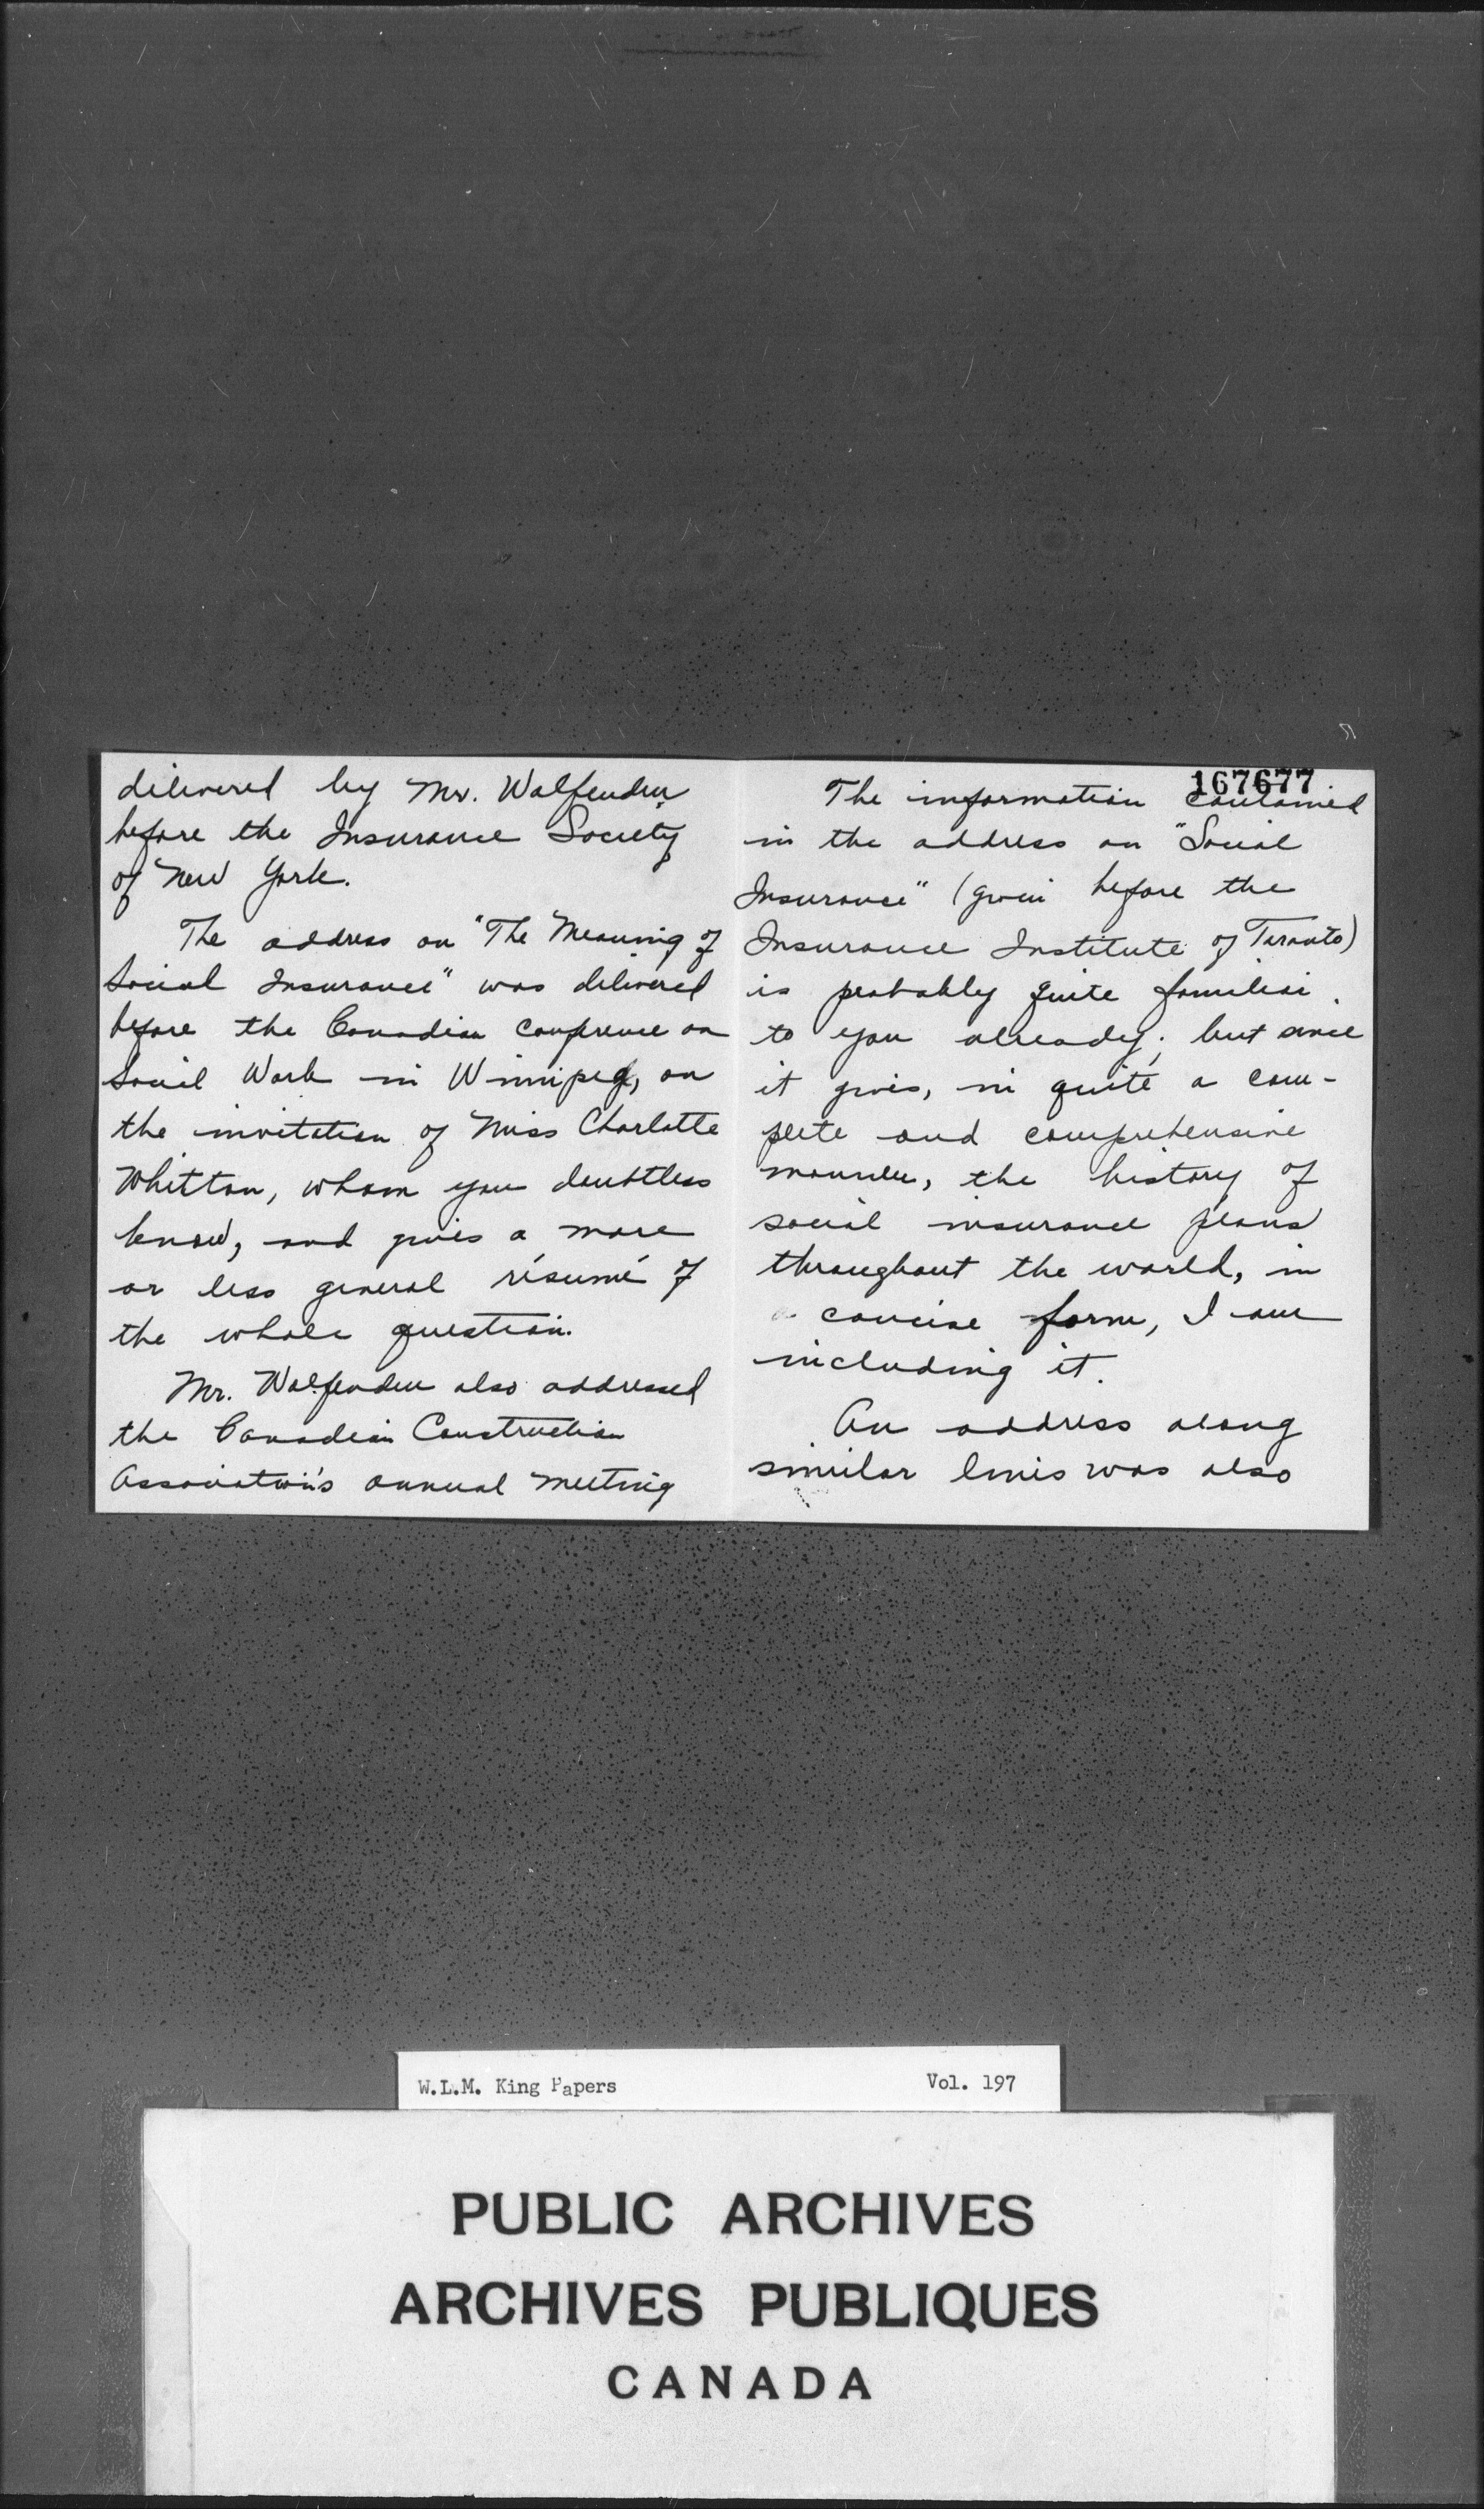 delivered by Mr. Wolfenden
before the Insurance Society
of New York.
The address on "The Meaning of
Social Insurance" was delivered
before the Canadian Conference on
Social Work in Winnipeg, on
the invitation of Miss Charlotte
Whitton, whom you doubtless
know, and gives a more
or less general résumé of
the whole question.
Mr. Wolfenden also addressed
the Canadian Construction
Association's annual meeting
167677
The information contained
in the address on "Social
Insurance" (given before the
Insurance Institute of Toronto)
is probably quite familiar
to you already; but since
it gives, in quite a com-
plete and comprehensive
manner, the history of
social insurance plans
throughout the world, in
a concise form, I am
including it.
An address along
similar lines was also
W.L.M. King Papers Vol. 197
PUBLIC ARCHIVES
ARCHIVES PUBLIQUES
CANADA